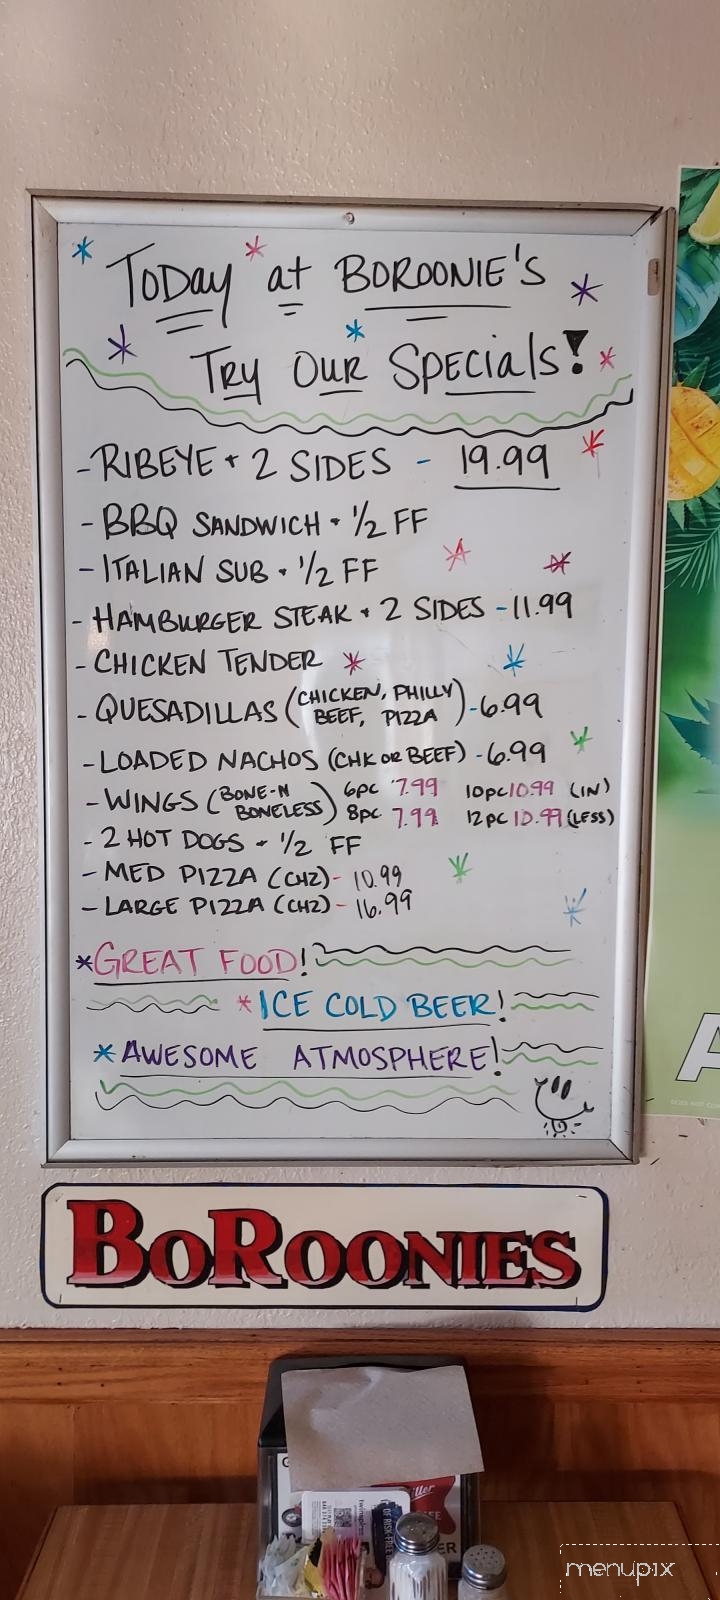 Today at BOROONIE'S
Try Our Specials!
- RIBEYE + 2 SIDES - 19.99
- BBQ SANDWICH + 1/2 FF
- ITALIAN SUB + 1/2 FF
- HAMBURGER STEAK + 2 SIDES - 11.99
- CHICKEN TENDER
- QUESADILLAS (CHICKEN, PHILLY BEEF, PIZZA) - 6.99
- LOADED NACHOS (CHK OR BEEF) - 6.99
- WINGS (BONE-N BONELESS) 6pc 7.99 10pc 10.99 (IN)
8pc 7.99 12pc 10.99 (LESS)
- 2 HOT DOGS + 1/2 FF
- MED PIZZA (CHZ) - 10.99
- LARGE PIZZA (CHZ) - 16.99
*GREAT FOOD!
*ICE COLD BEER!
*AWESOME ATMOSPHERE!
BOROONIES
A
menupix